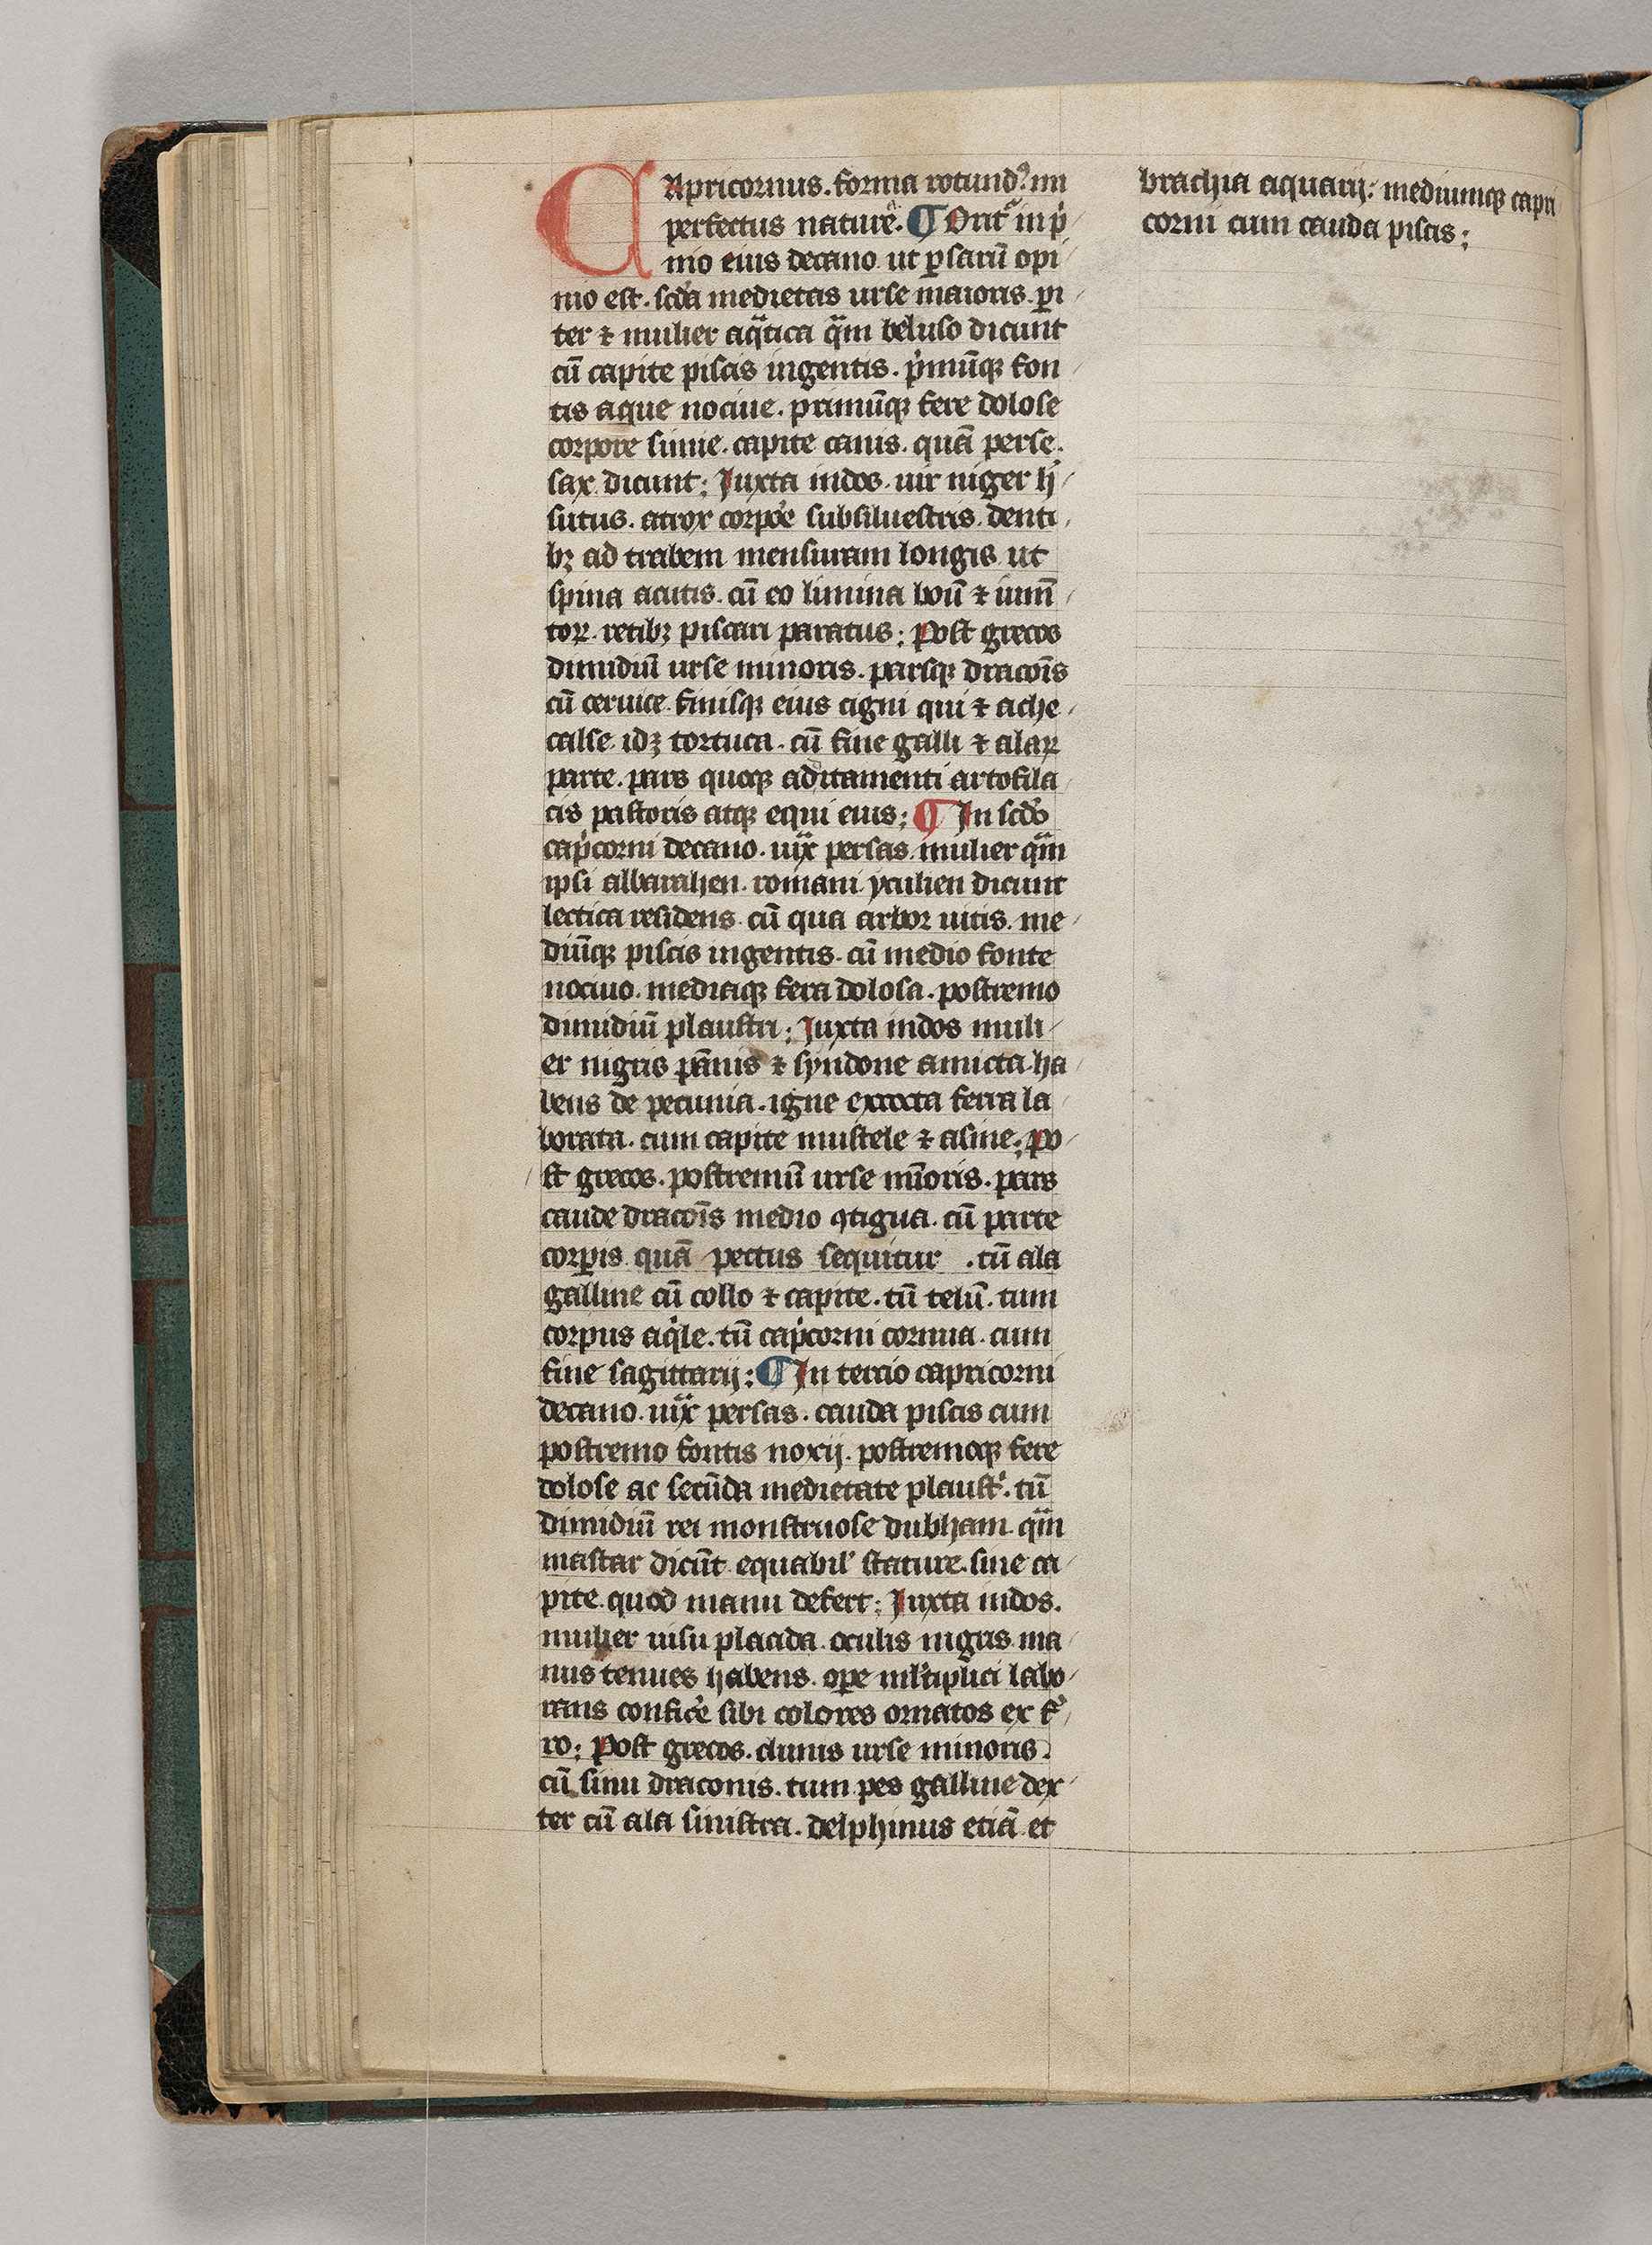 CApricornus. forma rotund9. im
perfectus nature. ¶ Orit᷑ in p͛
mo eius decano ut ꝑsarū opi
nio est. scd̄a medietas urse maioris. ꝑi
ter ⁊ mulier aqᷓtica qᷓm beluso dicunt
cū capite piscis ingentis. p͛mūqꝫ fon
tis aque nociue. primūqꝫ fere dolose
corpore simie. capite canis. quā perse.
sax dicunt; Juxta indos. uir niger hͥ
sutus. atrox corpo͛e subsiluestris. denti
bꝫ ad trabem mensuram longis ut
spina acutis. cū eo limina boū ⁊ iumn̄
toꝝ. retibꝫ piscari paratus; Post grecos
dimidiū urse minoris. parsqꝫ dracoīs
cū ceruice. finisqꝫ eius cigni qui ⁊ ache
calse. idꝫ tortuca. cū fine galli ⁊ alaꝝ
parte. pars quoqꝫ aditamenti artofila
cis pastoris atqꝫ equi eius; ¶ In scd̄o
cap͛corni decano. iuᷓx persas. mulier qᷓm
ipsi albarahen. romani yculien dicunt
lectica residens. cū qua arbor uitis. me
diūqꝫ piscis ingentis. cū medio fonte
nociuo. mediaqꝫ fera dolosa. postremo
dimidiū plaustri; Juxta indos muli
er nigris pānis ⁊ syndone amicta. ha
bens de pecunia. igne excocta ferra la
borata. cum capite mustele ⁊ asine; Po
st grecos. postremū urse mīoris. pars
caude dracoīs medio ꝯtigua. cū parte
corꝑis quā pectus sequitur . tū ala
galline cū collo ⁊ capite. tū telū. tum
corpus aqͥle. tū cap͛corni cornua. cum
fine sagittarij; ¶ In tercio capricorni
decano. iuᷓx persas. cauda piscis cum
postremo fontis noxij. postremoqꝫ fere
dolose ac secūda medietate plaust͛. tū
dimidiū rei monstruose dubham. qᷓm
mastar dicūt. equabil' stature. sine ca
pite. quod manu defert; Juxta indos.
mulier uisu placida. oculis nigris. ma
nus tenues habens. oꝑe ml̓tiplici labo
rans confice͛ sibi colores ornatos ex f͛
ro; Post grecos. clunis urse minoris.
cū sinu draconis. tum pes galline dex
ter cū ala sinistra. delphinus etiā et
brachia aquarij; mediumqꝫ capri
corni cum cauda piscis;